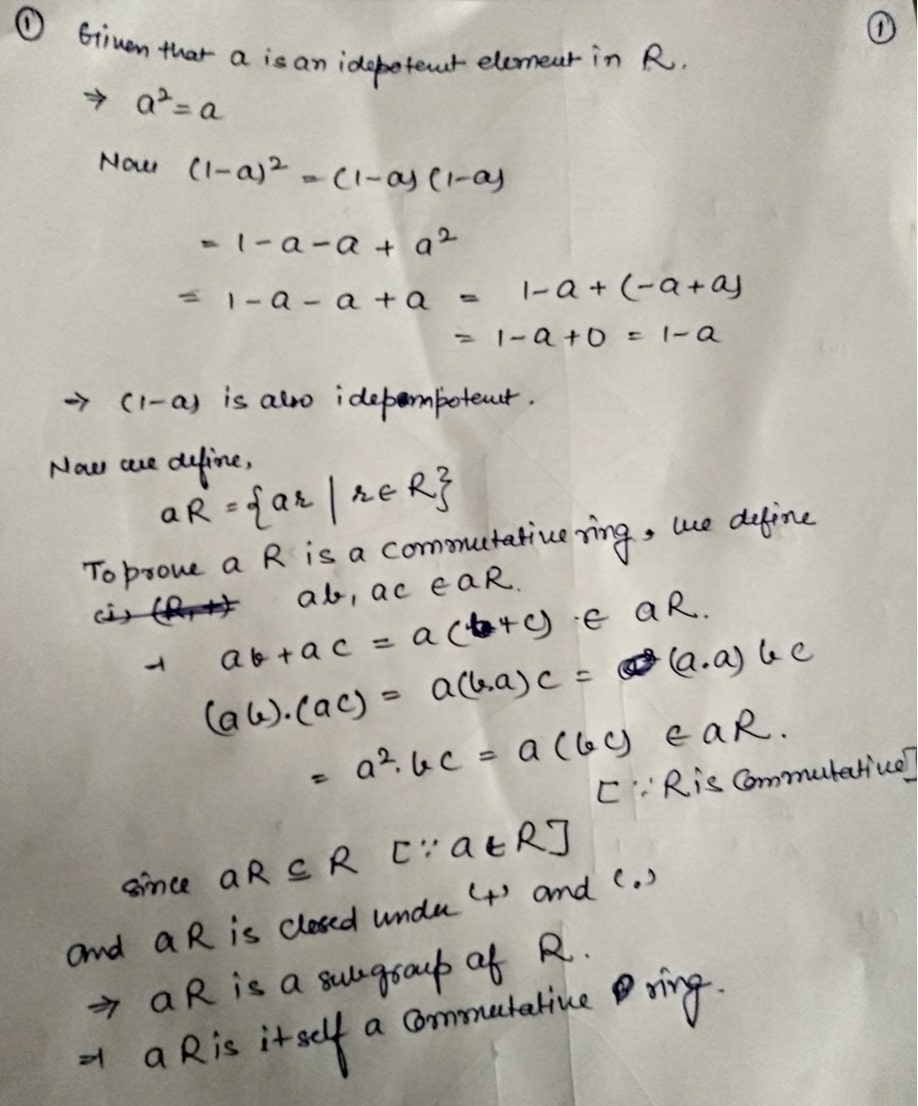 ① ①
Given that a is an idepotent element in R.
⇒ a² = a
Now (1-a)² = (1-a) (1-a)
= 1-a-a + a²
= 1-a-a+a = 1-a+(-a+a)
= 1-a+0 = 1-a
⇒ (1-a) is also idepempotent.
Now we define,
aR = {ar | r ∈ R}
To prove a R is a commutative ring, we define
(i) (R,+) ab, ac ∈ aR.
⇒ ab+ac = a(b+c) ∈ aR.
(ab).(ac) = a(b.a)c = (a.a) bc
= a².bc = a(bc) ∈ aR.
[∵ R is Commutative]
since aR ⊆ R [∵ a ∈ R]
and aR is closed under (+) and (.)
⇒ aR is a subgroup of R.
⇒ aR is itself a commutative ring.